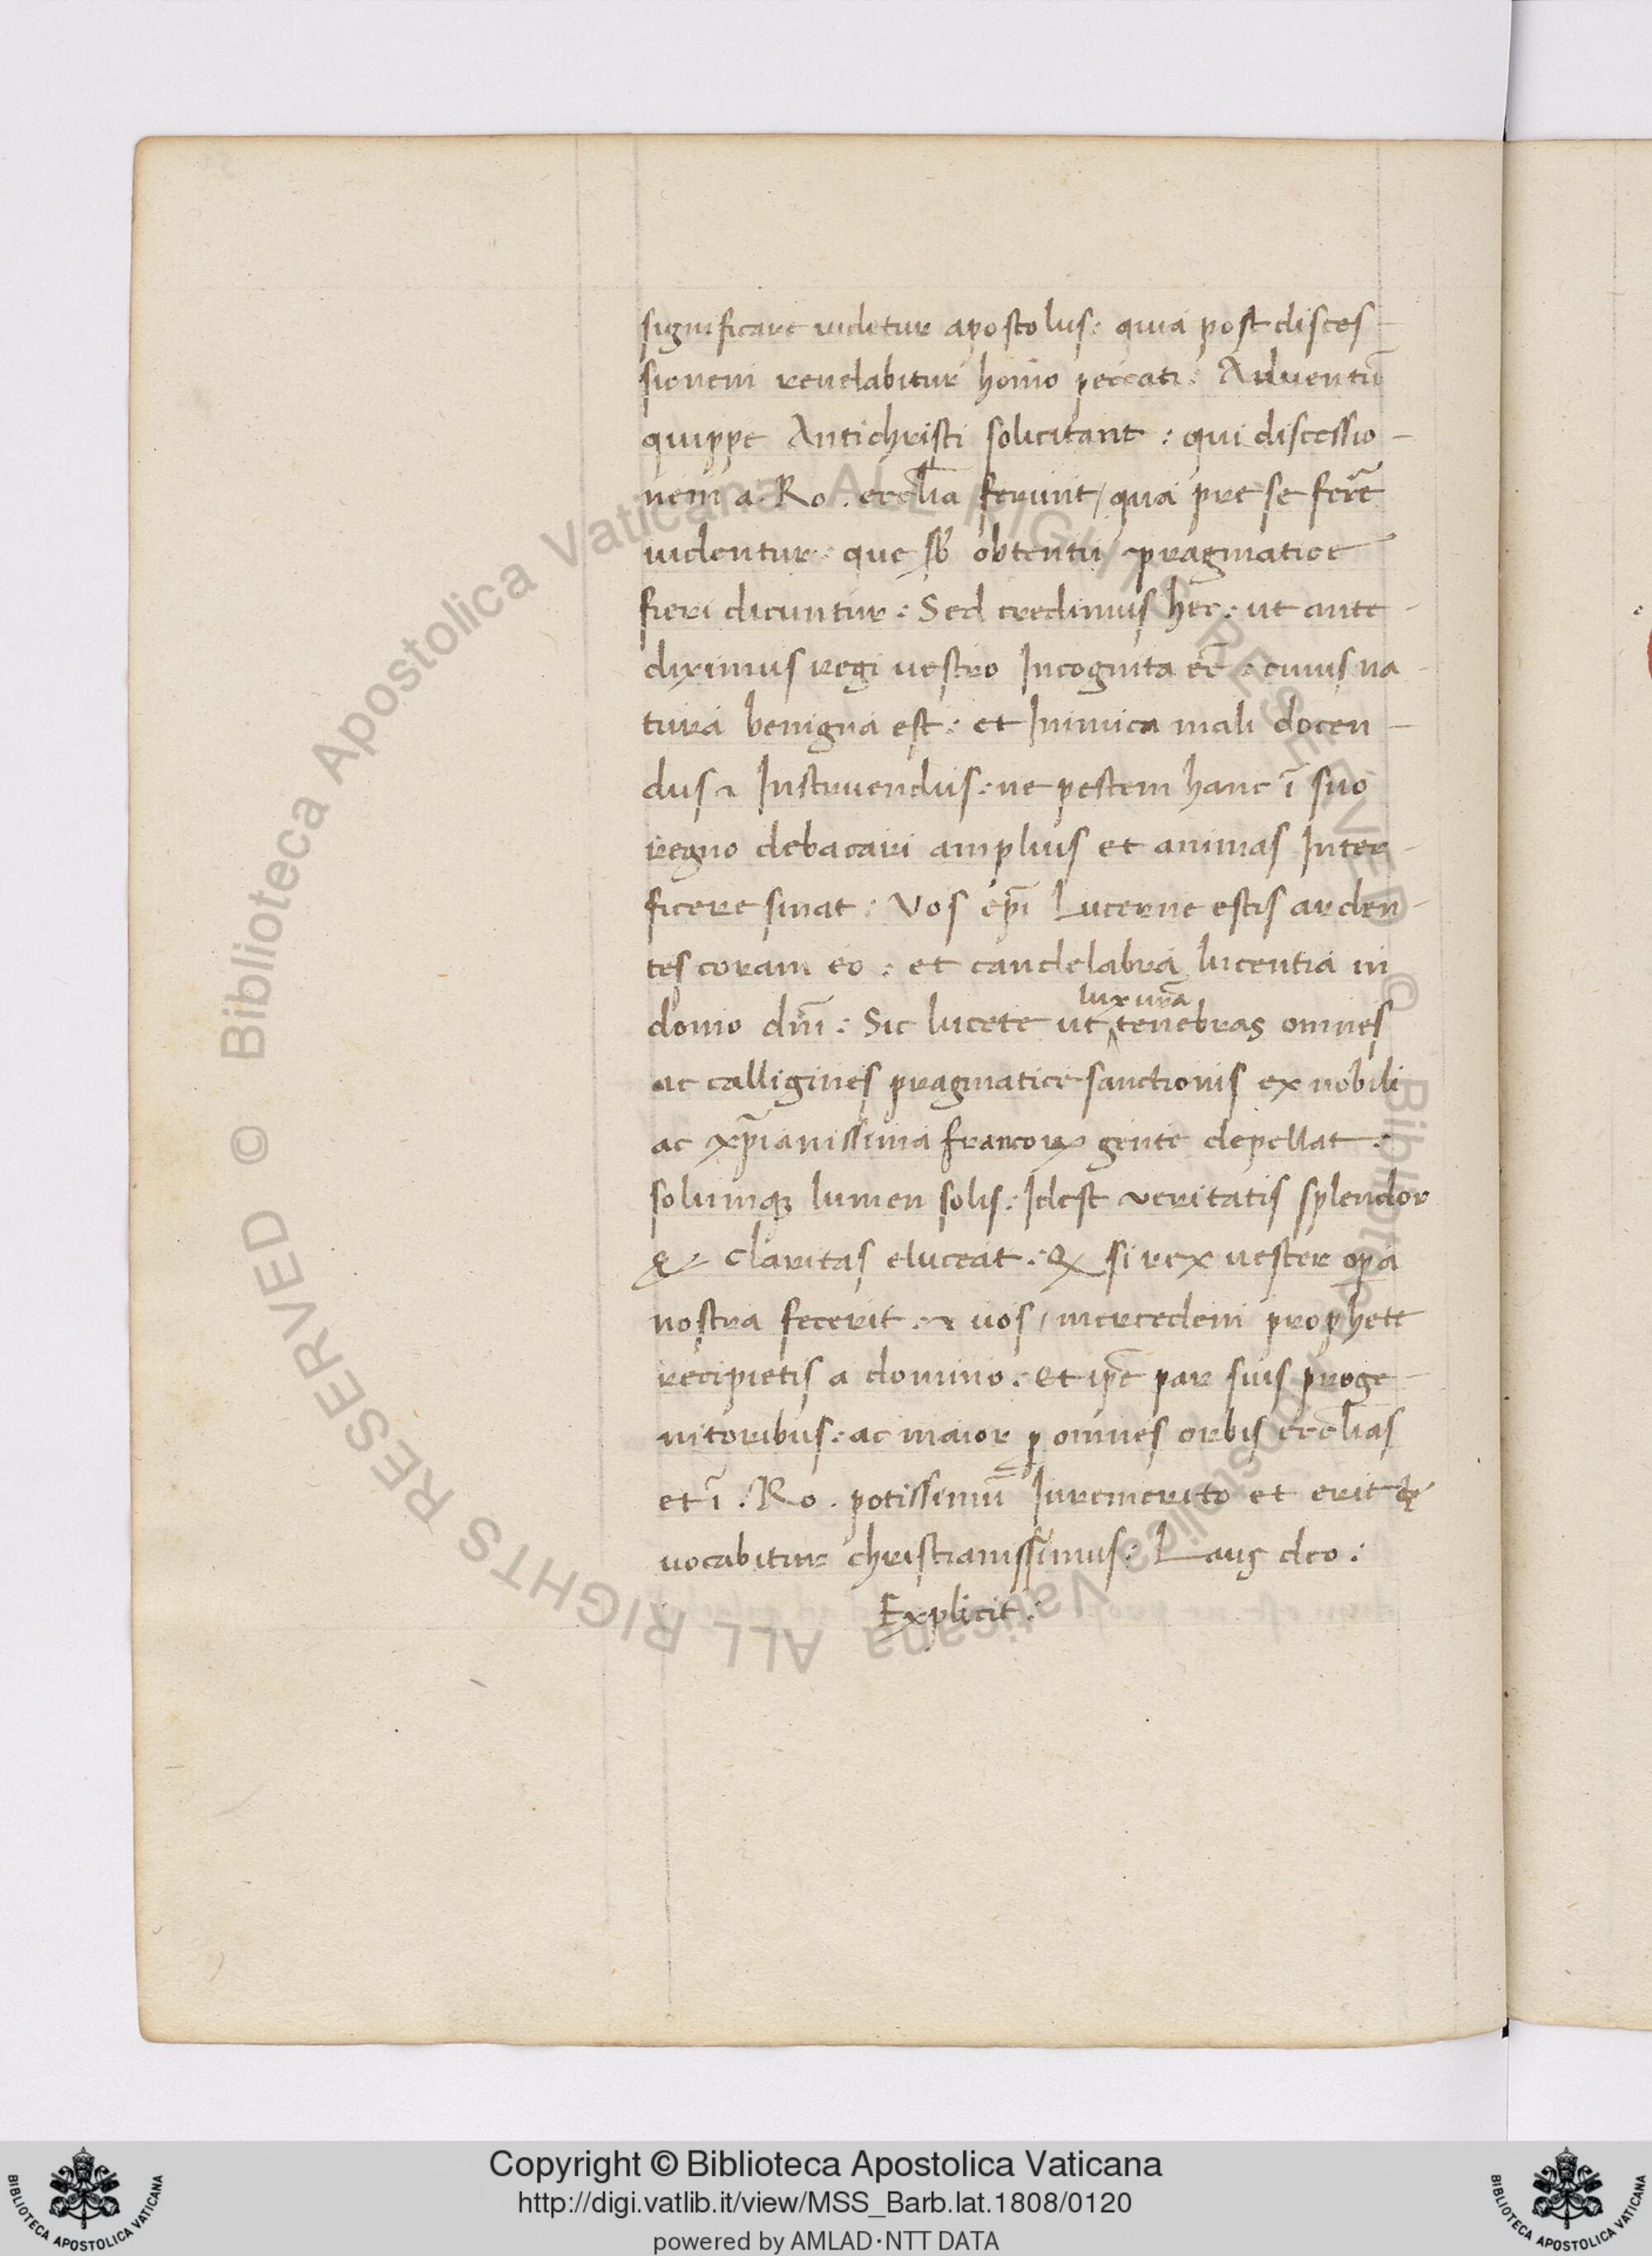 significare uidetur apostolus: quia post disces-
sionem reuelabitur homo peccati: Aduentũ
quippe Antichristi solicitant: qui discessio-
nem a. Ro. eccl̃ia ferunt/ qua pre se ferr̃e
uidentur: que sb̃ obtentu pragmatice
fieri dicuntur: Sed credimus hec: ut ante-
diximus regi uestro Incognita eẽ: cuius na-
tura benigna est: et Inimica mali docen-
dus & Instruendus: ne pestem hanc ĩ suo
regno debacari amplius et animas Inter-
ficere sinat: Vos ep̃i Lucerne estis arden-
tes coram eo: et candelabra lucentia in
lux ur̃a
domo dñi: Sic lucete ut ^ tenebras omnes
ac calligines pragmatice sanctionis ex nobili
ac xp̃ianissima francoꝝ gente depellat:
solumqꝫ lumen solis: Idest veritatis splendor
& claritas eluceat: Qꝫ si rex uester opa
nostra fecerit: & uos/ mercedem prophete
recipietis a domino: Et ip̃e par suis proge-
nitoribus: ac maior ꝑ omnes orbis eccl̃ias
et ĩ. Ro. potissimũ Iuremerito et erit &
uocabitur christianissimus: Laus deo:
Explicit:
Copyright © Biblioteca Apostolica Vaticana
http://digi.vatlib.it/view/MSS_Barb.lat.1808/0120
powered by AMLAD·NTT DATA
BIBLIOTECA APOSTOLICA VATICANA
BIBLIOTECA APOSTOLICA VATICANA
© Biblioteca Apostolica Vaticana ALL RIGHTS RESERVED © Biblioteca Apostolica Vaticana ALL RIGHTS RESERVED